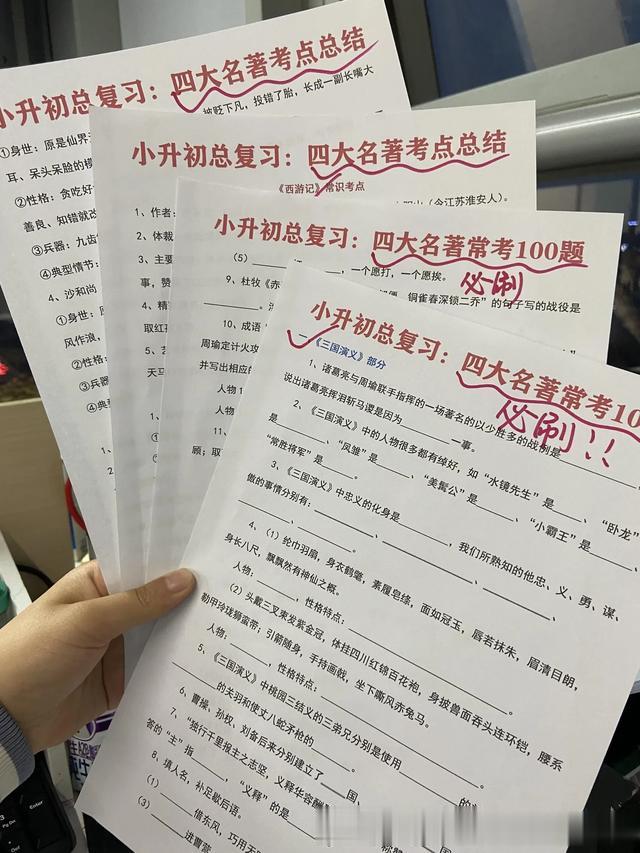 小升初总复习：四大名著考点总结
被贬下凡，投错了胎，长成一副长嘴大
①身世：原是仙界
耳、呆头呆脸的模
②性格：贪吃好
善良、知错就改
③兵器：九齿
④典型情节：
4、沙和尚
①身世：
风作浪，
②性格：
③兵器：
④典
小升初总复习：四大名著考点总结
《西游记》常识考点
1、作者：
（今江苏淮安人）。
2、体裁
3、主要
事，赞
4、精
取红孩
5、艺
天马
小升初总复习：四大名著常考100题
必刷
（5）
，一个愿打，一个愿挨。
9、杜牧《赤
便，铜雀春深锁二乔”的句子写的战役是
10、成语
周瑜定计火攻
并写出相应的
人物
11、
顾；取
小升初总复习：四大名著常考10
必刷!!
一《三国演义》部分
1、诸葛亮与周瑜联手指挥的一场著名的以少胜多的战例是
说出诸葛亮挥泪斩马谡是因为一事。
2、《三国演义》中的人物很多都有绰好，如“水镜先生”是、“卧龙”
是、“凤雏”是、“美髯公”是、“小霸王”是、
“常胜将军”是。
3、《三国演义》中忠义的化身是，我们所熟知的他忠、义、勇、谋、
傲的事情分别有：、、、、
4、（1）纶巾羽扇，身衣鹤氅，素履皂绦，面如冠玉，唇若抹朱，眉清目朗，
身长八尺，飘飘然有神仙之概。
人物：，性格特点：
（2）头戴三叉束发紫金冠，体挂四川红锦百花袍，身披兽面吞头连环铠，腰系
勒甲玲珑狮蛮带；引箭随身，手持画戟，坐下嘶风赤兔马。
人物：，性格特点：。
5、《三国演义》中桃园三结义的三弟兄分别是使用
的关羽和使丈八蛇矛枪的。
6、曹操、孙权、刘备后来分别建立了国、
7、“独行千里报主之志坚，义释华容酬
答的“主”指，“义释”的是
8、填人名，补足歇后语。
（1）借东风，巧用天
（3）进曹营